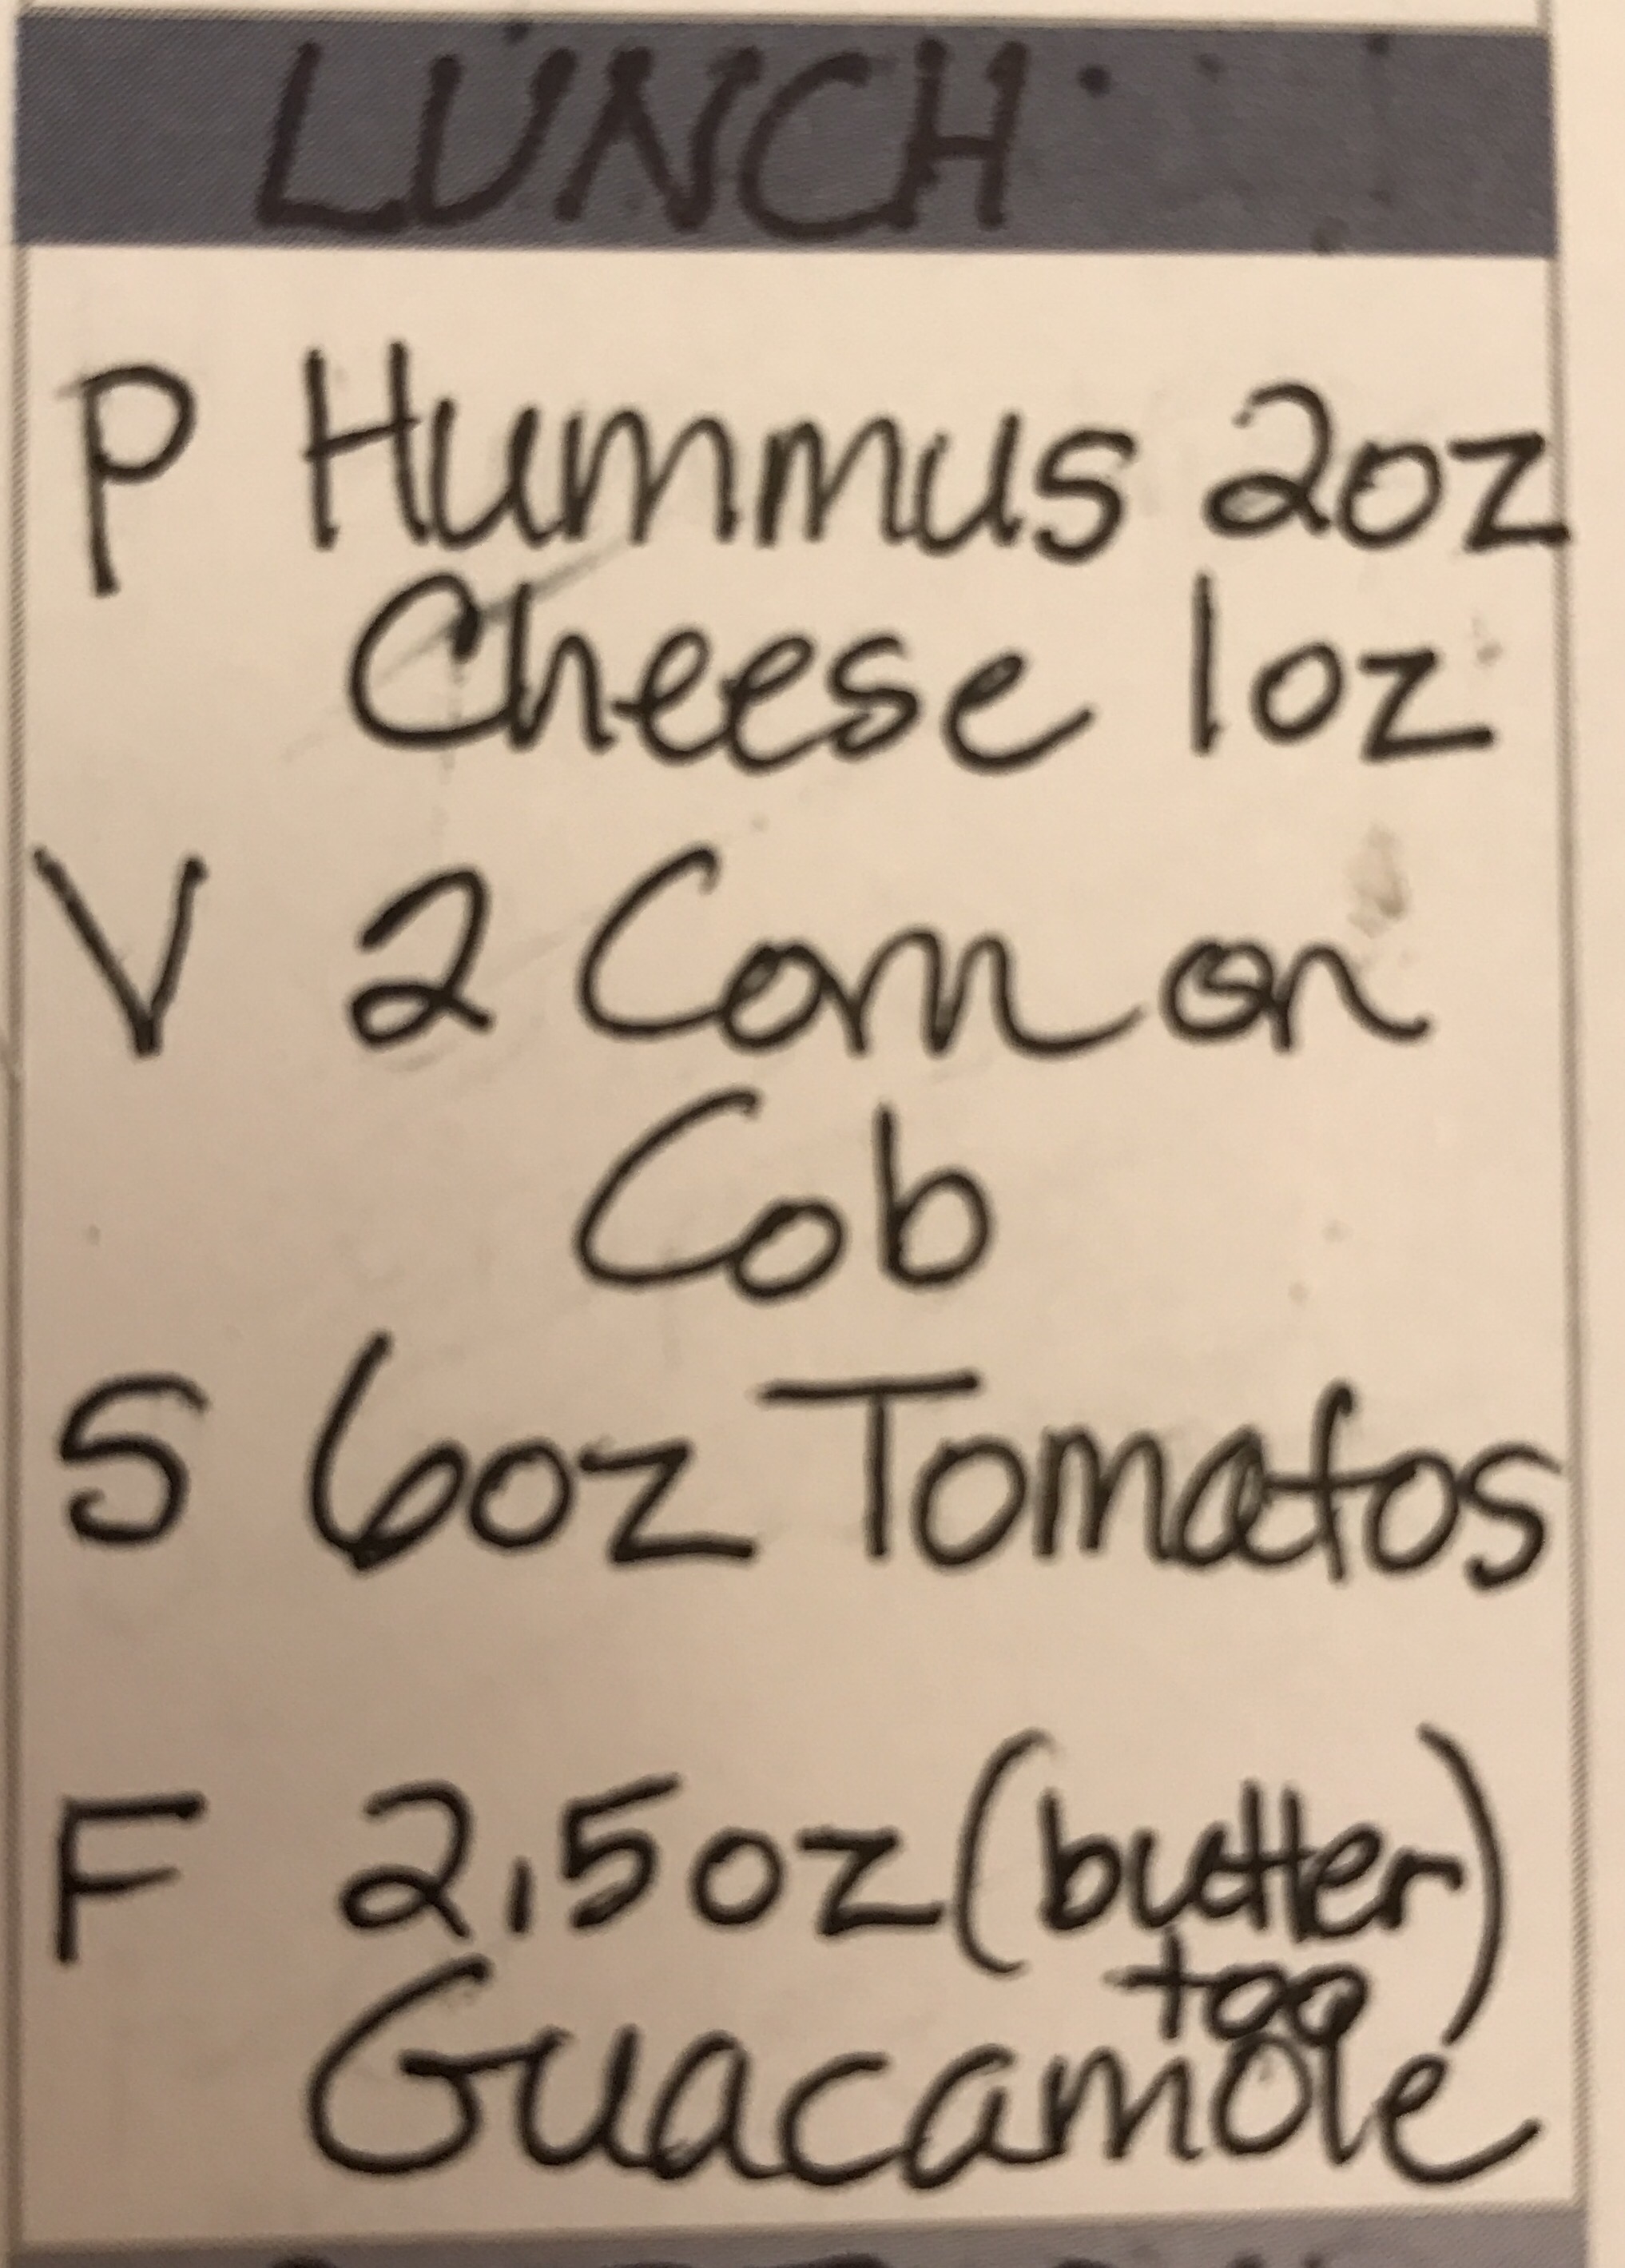 LUNCH
P Hummus 2oz
Cheese 1oz
V 2 Corn on
Cob
S 6oz Tomatos
F 2.5oz (butter
too)
Guacamole